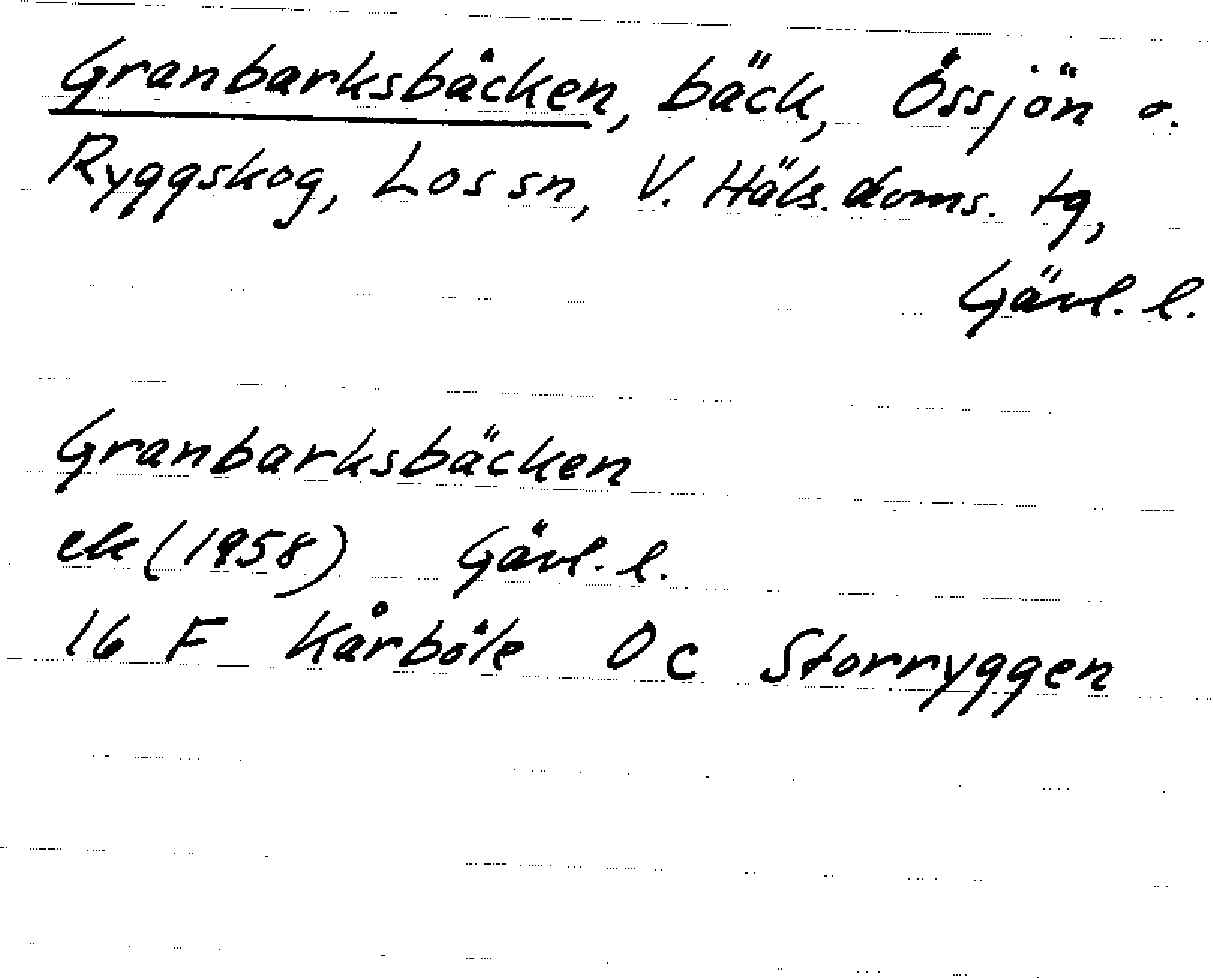 Granbarksbäcken, bäck, Össjön o.
Ryggskog, Los sn, V. Häls. doms. tg,
Gävl. l.
Granbarksbäcken
ek (1958) Gävl. l.
16 F Kårböle 0 c Storryggen